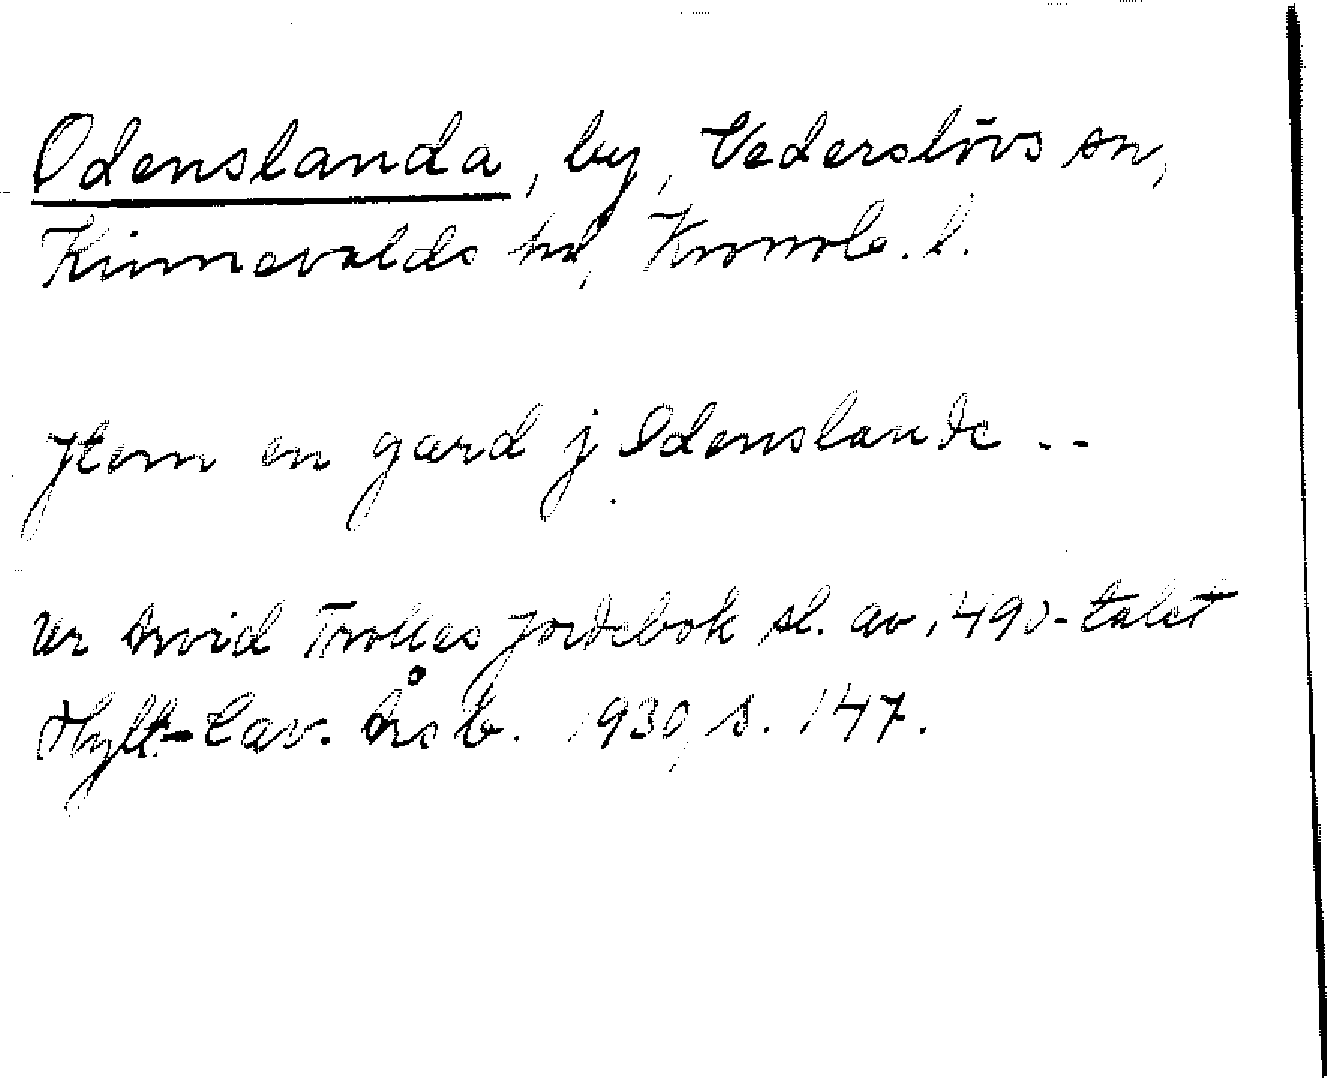 Odenslanda, by, Vederslövs sn,
Kinnevalds hd, Kronob. l.
Jtem en gard j Odenslande --
Ur Arvid Trolles jordebok sl. av 1490-talet
Hylt-Cav. Årsb. 1930, s. 147.